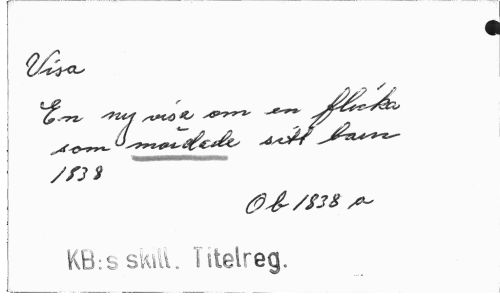 Visa
En ny visa om en flicka
som mördade sitt barn
1838
Ob 1838 a
KB:s skill. Titelreg.